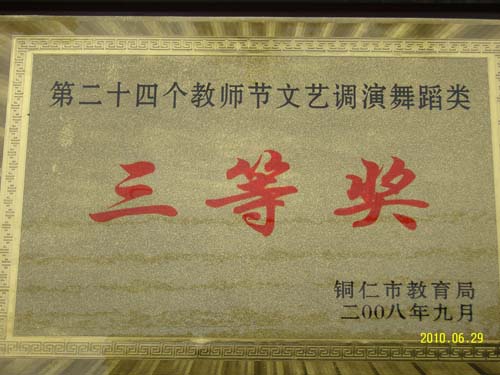 第二十四个教师节文艺调演舞蹈类
三等奖
铜仁市教育局
二00八年九月
2010.06.29